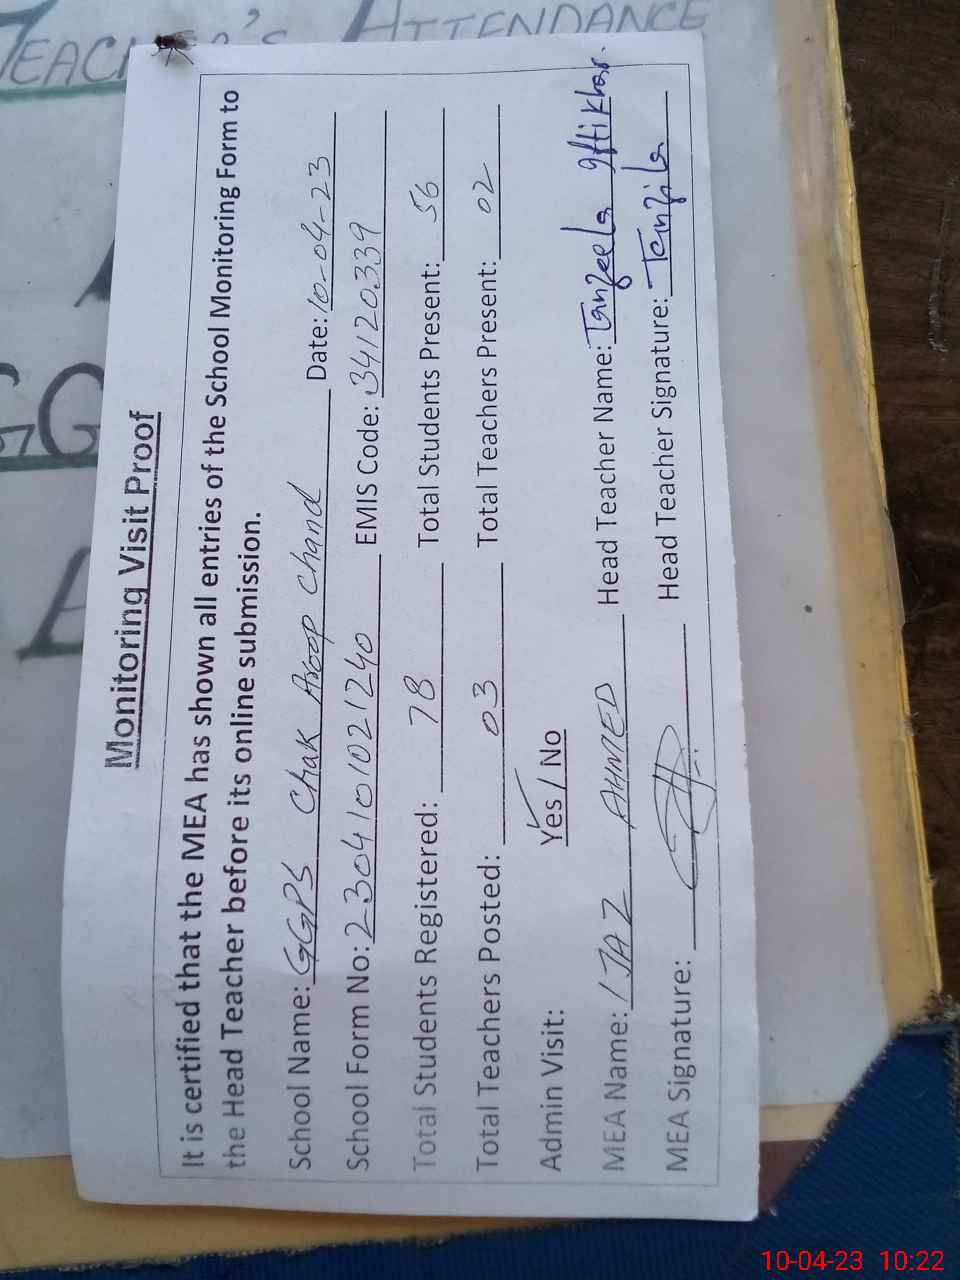 TEACHER'S ATTENDANCE
GG
Monitoring Visit Proof
It is certified that the MEA has shown all entries of the School Monitoring Form to
the Head Teacher before its online submission.
School Name: GGPS Chak Aroop Chand Date: 10-04-23
School Form No: 2304101021240 EMIS Code: 34120339
Total Students Registered: 78 Total Students Present: 56
Total Teachers Posted: 03 Total Teachers Present: 02
Admin Visit: Yes / No
MEA Name: IJAZ AHMED Head Teacher Name: Tanzeela Iftikhar.
MEA Signature: Head Teacher Signature: Tanzila
10-04-23 10:22